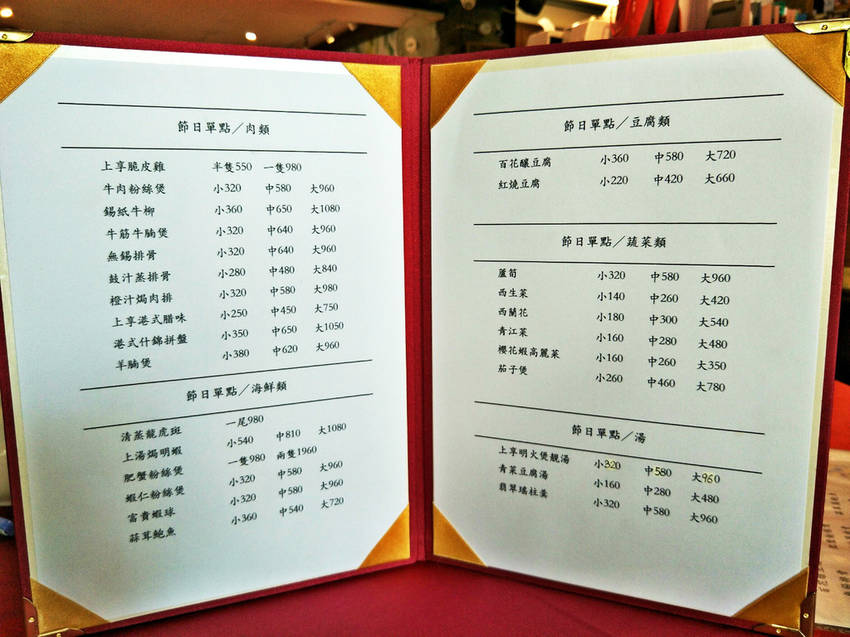 節日單點／肉類
上享脆皮雞 半隻550 一隻980
牛肉粉絲煲 小320 中580 大960
錫紙牛柳 小360 中650 大1080
牛筋牛腩煲 小320 中640 大960
無錫排骨 小320 中640 大960
鼓汁蒸排骨 小280 中480 大840
橙汁焗肉排 小320 中580 大980
上享港式腊味 小250 中450 大750
港式什錦拼盤 小350 中650 大1050
羊腩煲 小380 中620 大960
節日單點／海鮮類
清蒸龍虎斑 一尾980
上湯焗明蝦 小540 中810 大1080
肥蟹粉絲煲 一隻980 兩隻1960
蝦仁粉絲煲 小320 中580 大960
富貴蝦球 小320 中580 大960
蒜茸鮑魚 小360 中540 大720
節日單點／豆腐類
百花釀豆腐 小360 中580 大720
紅燒豆腐 小220 中420 大660
節日單點／蔬菜類
蘆筍 小320 中580 大960
西生菜 小140 中260 大420
西蘭花 小180 中300 大540
青江菜 小160 中280 大480
櫻花蝦高麗菜 小160 中260 大350
茄子煲 小260 中460 大780
節日單點／湯
上享明火煲靚湯 小320 中580 大960
青菜豆腐湯 小160 中280 大480
翡翠瑤柱羹 小320 中580 大960